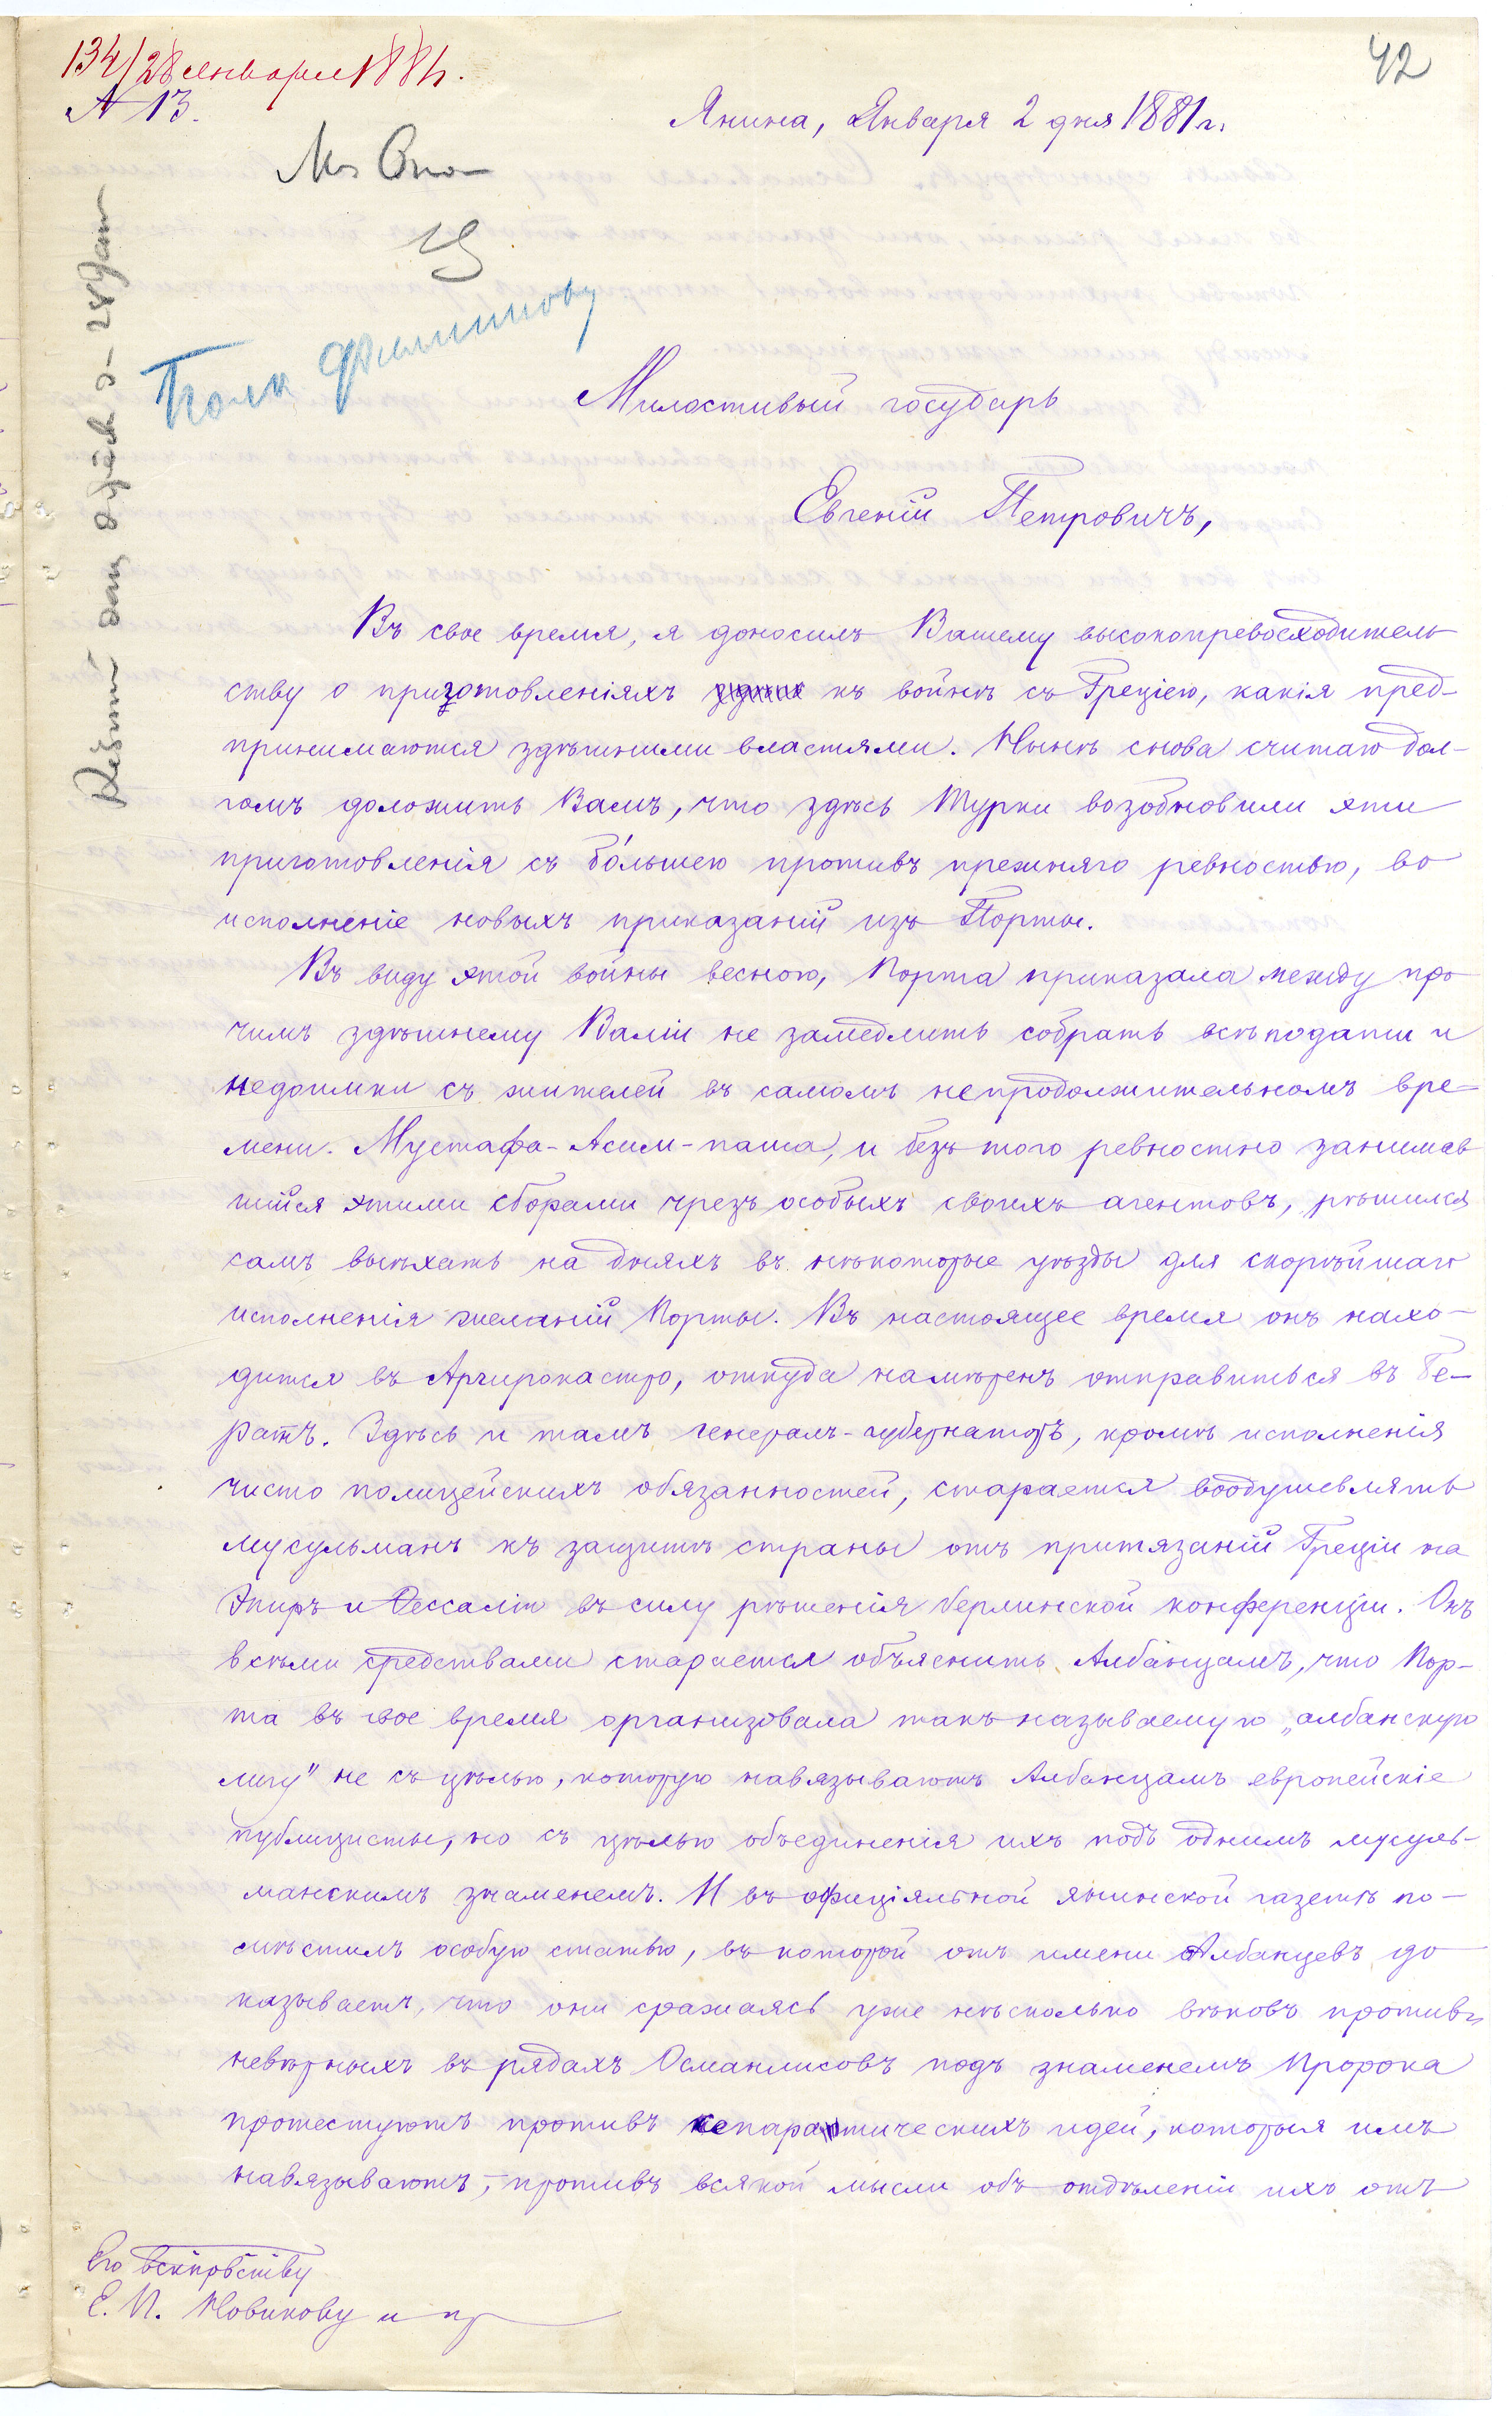 134/28 января 1881.
42
№ 13.
Янина, Января 2 дня 1881 г.
Полк Филиппову
Милостивый государь
Евгеній Петровичъ,
Въ свое время, я доносилъ Вашему высокопревосходитель
ству о приготовленіяхъ къ войнѣ съ Греціею, какія пред-
принимаются здѣшними властями. Нынѣ снова считаю дол-
гомъ доложить Вамъ, что здѣсь Турки возобновили эти
приготовленія съ бо́льшею противъ прежняго ревностью, во
исполненіе новыхъ приказаній изъ Порты.
Въ виду этой войны весною, Порта приказала между про
чимъ здѣшнему Валіи не замедлить собрать всѣ подати и
недоимки съ жителей въ самомъ непродолжительномъ вре-
мени. Мустафа-Асим-паша, и безъ того ревностно занимав
шійся этими сборами чрезъ особыхъ своихъ агентовъ, рѣшился
самъ выѣхать на дняхъ въ нѣкоторые уѣзды для скорѣйшаго
исполненія желаній Порты. Въ настоящее время онъ нахо-
дится въ Аргирокастро, откуда намѣренъ отправиться въ Бе-
ратъ. Здѣсь и тамъ генералъ-губернаторъ, кромѣ исполненія
чисто полицейскихъ обязанностей, старается воодушевлять
мусульманъ къ защитѣ страны отъ притязаній Греціи на
Эпиръ и Ѳессалію въ силу рѣшенія берлинской конференціи. Онъ
всѣми средствами старается объяснить Албанцамъ, что Пор-
та въ свое время организовала такъ называемую „албанскую
лигу" не съ цѣлью, которую навязываютъ Албанцамъ европейскіе
публицисты, но съ цѣлью объединенія ихъ подъ однимъ мусуль-
манскимъ знаменемъ. И въ офиціяльной янинской газетѣ по-
мѣстилъ особую статью, въ которой отъ имени Албанцевъ до
казываетъ, что они сражаясь уже нѣсколько вѣковъ противъ
невѣрныхъ въ рядахъ Османлисовъ подъ знаменемъ Пророка
протестуютъ противъ сепаратическихъ идей, которыя имъ
навязываютъ, - противъ всякой мысли объ отдѣленіи ихъ отъ
Его вскпров̅ству
Е. П. Новикову и пр